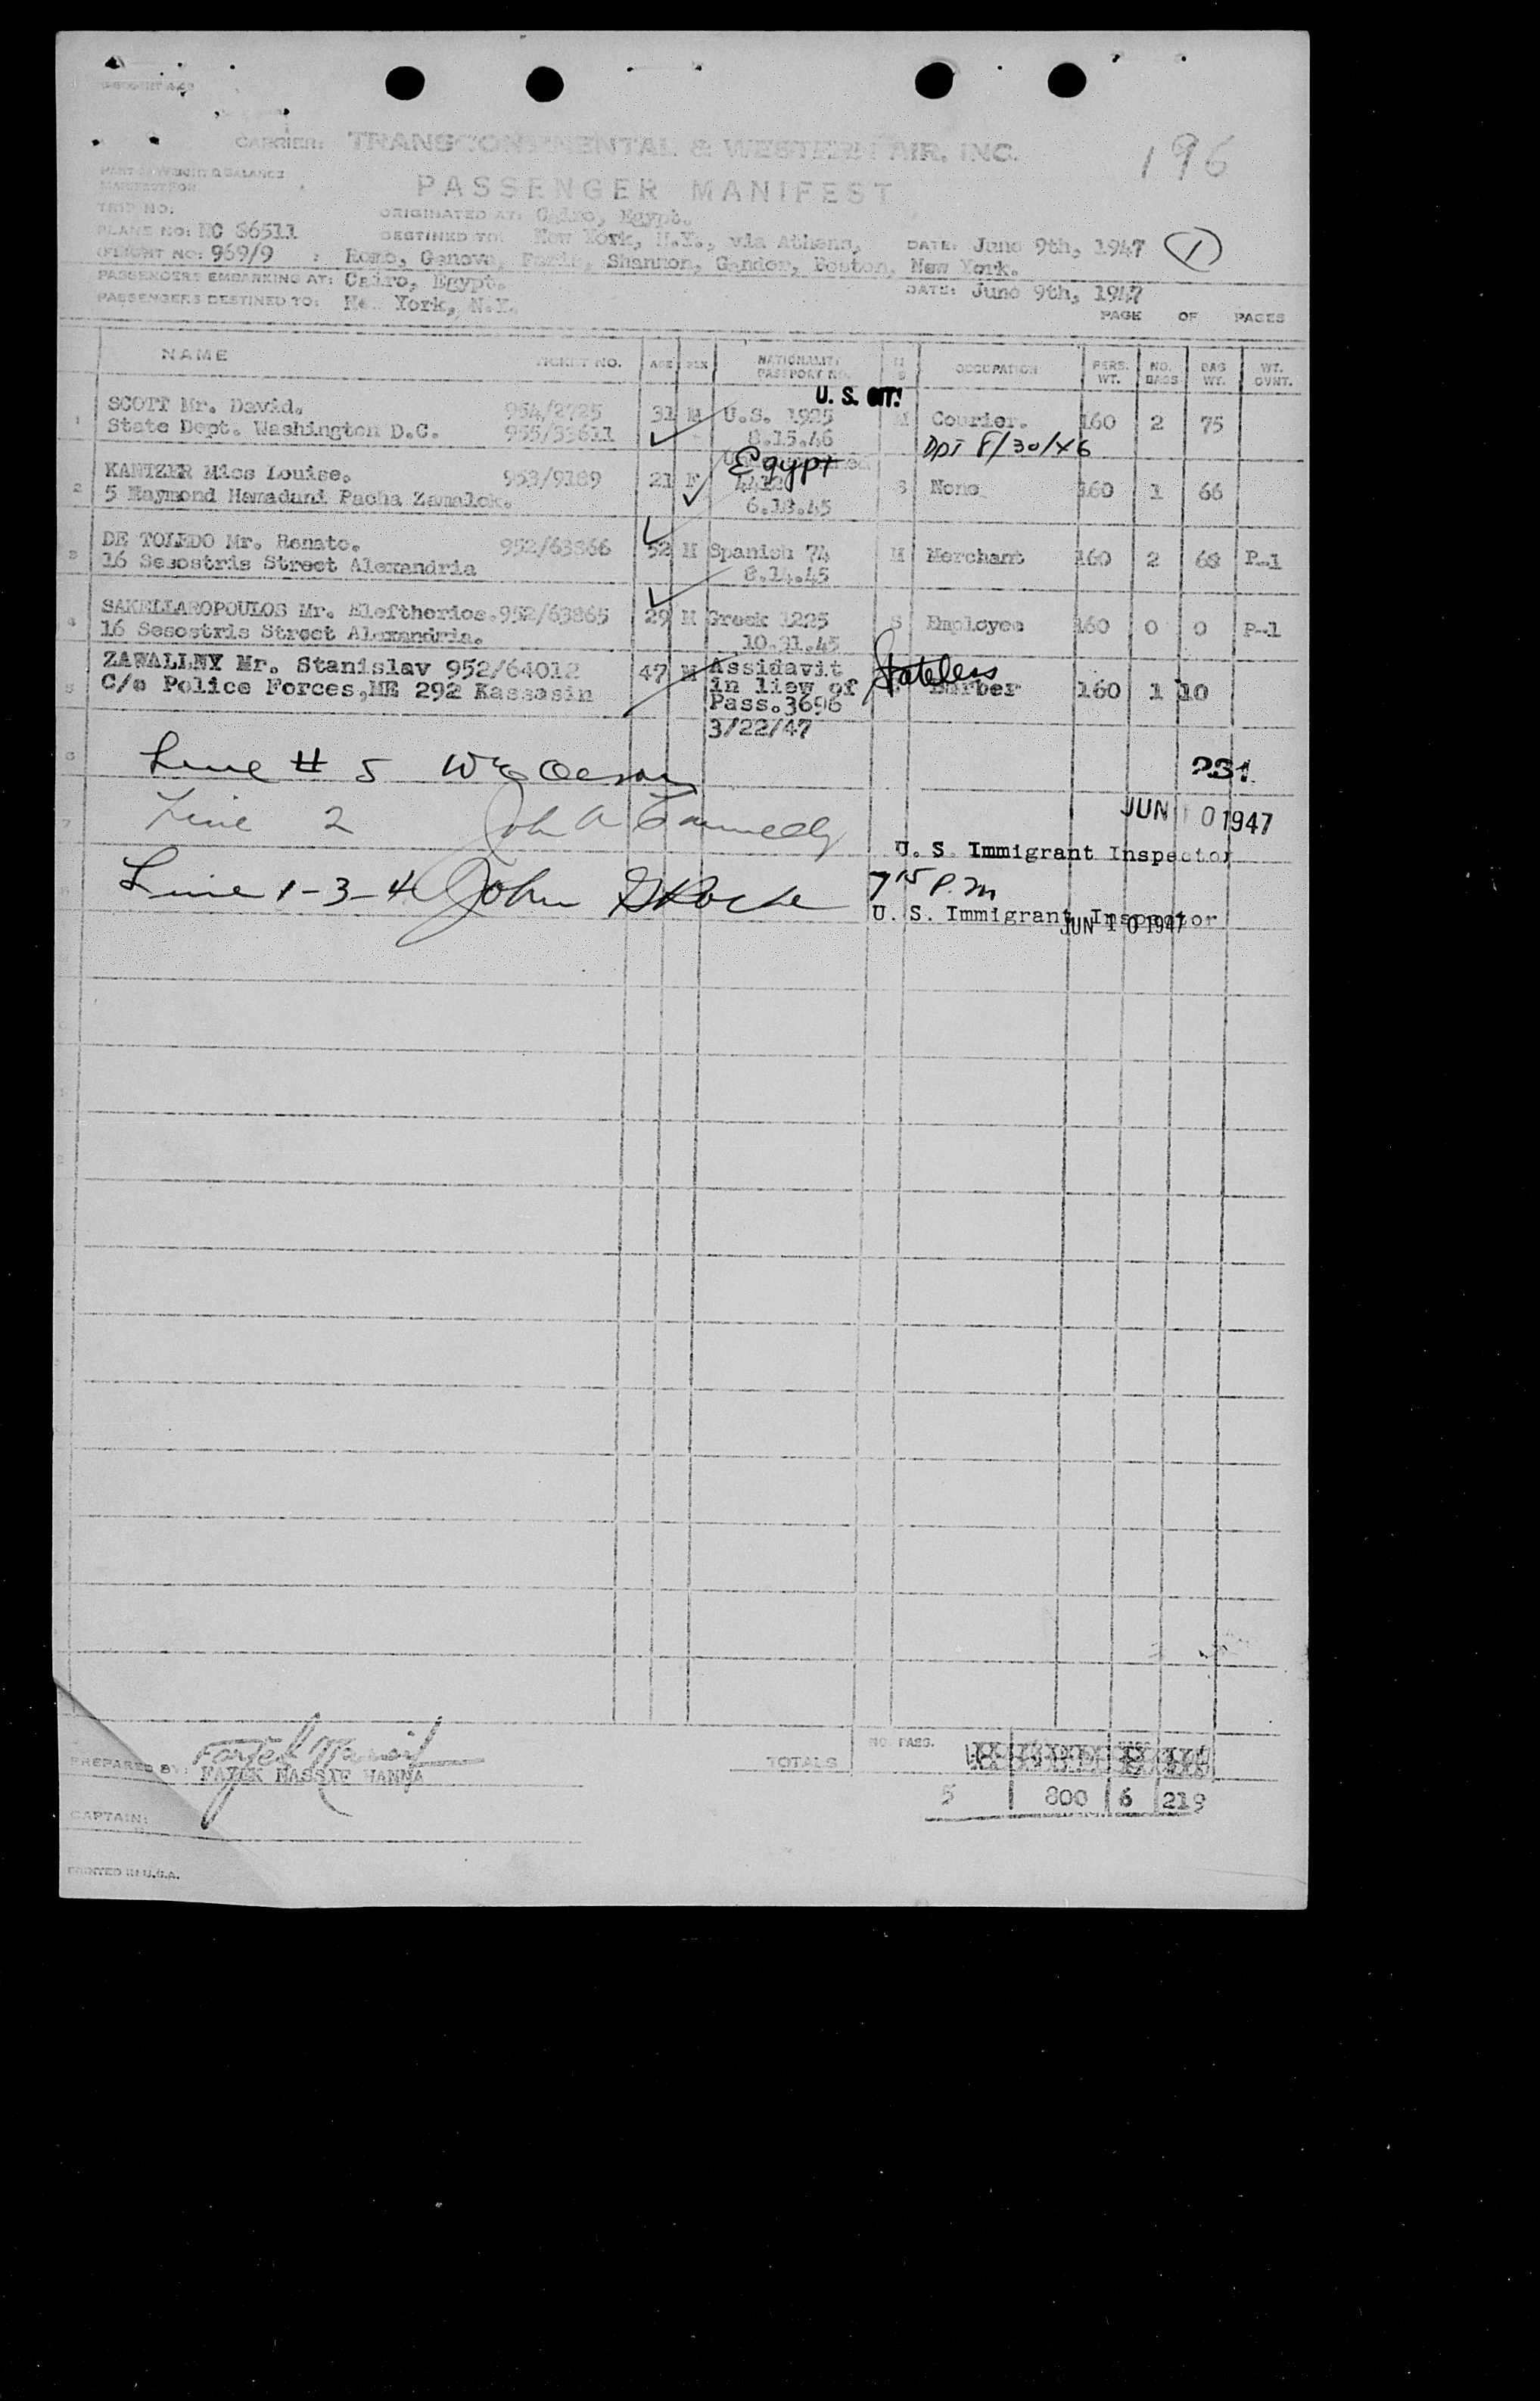 196
CARRIER: TRANSCONTINENTAL & WESTERN AIR, INC.
PART OF WEIGHT & BALANCE
MANIFEST FOR
PASSENGER MANIFEST
TRIP NO.
ORIGINATED AT: Cairo, Egypt.
PLANE NO: NC 86511
DESTINED TO: New York, N.Y., via Athens, DATE: June 9th, 1947 1
FLIGHT NO: 969/9 : Rome, Geneva, Paris, Shannon, Gander, Boston, New York.
PASSENGERS EMBARKING AT: Cairo, Egypt. DATE: June 9th, 1947
PASSENGERS DESTINED TO: New York, N.Y.
PAGE OF PAGES
NAME TICKET NO. AGE SEX NATIONALITY PASSPORT NO. M S OCCUPATION PERS. WT. NO. BAGS BAG WT. WT. OVNT.
U. S. CIT.
1 SCOTT Mr. David. 954/2725 31 M U.S. 1925 M Courier. 160 2 75
State Dept. Washington D.C. 955/33611 8.15.46
DPT 8/30/46
Egypt
2 KANTZER Miss Louise. 953/9189 21 F 4412 S None 160 1 66
5 Maymond Hamaduni Pacha Zamalek. 6.18.45
3 DE TOLEDO Mr. Renato. 952/63866 52 M Spanish 74 M Merchant 160 2 68 P-1
16 Sesostris Street Alexandria 8.14.45
4 SAKELLAROPOULOS Mr. Eleftherios. 952/63865 29 M Greek 1225 S Employee 160 0 0 P-1
16 Sesostris Street Alexandria. 10.31.45
5 ZAWALLNY Mr. Stanislav 952/64012 47 M Assidavit Stateless
C/o Police Forces,ME 292 Kassasin in liew of Barber 160 1 10
Pass.3696
3/22/47
6 Line # 5
231
7 Line 2 John A
JUN 10 1947
U. S. Immigrant Inspector
Line 1-3-4 John
7 15 P.M
U. S. Immigrant Inspector
JUN 10 1947
PREPARED BY: FAYEK NASSIF HANNA
TOTALS NO. PASS.
5 800 6 219
CAPTAIN:
PRINTED IN U.S.A.